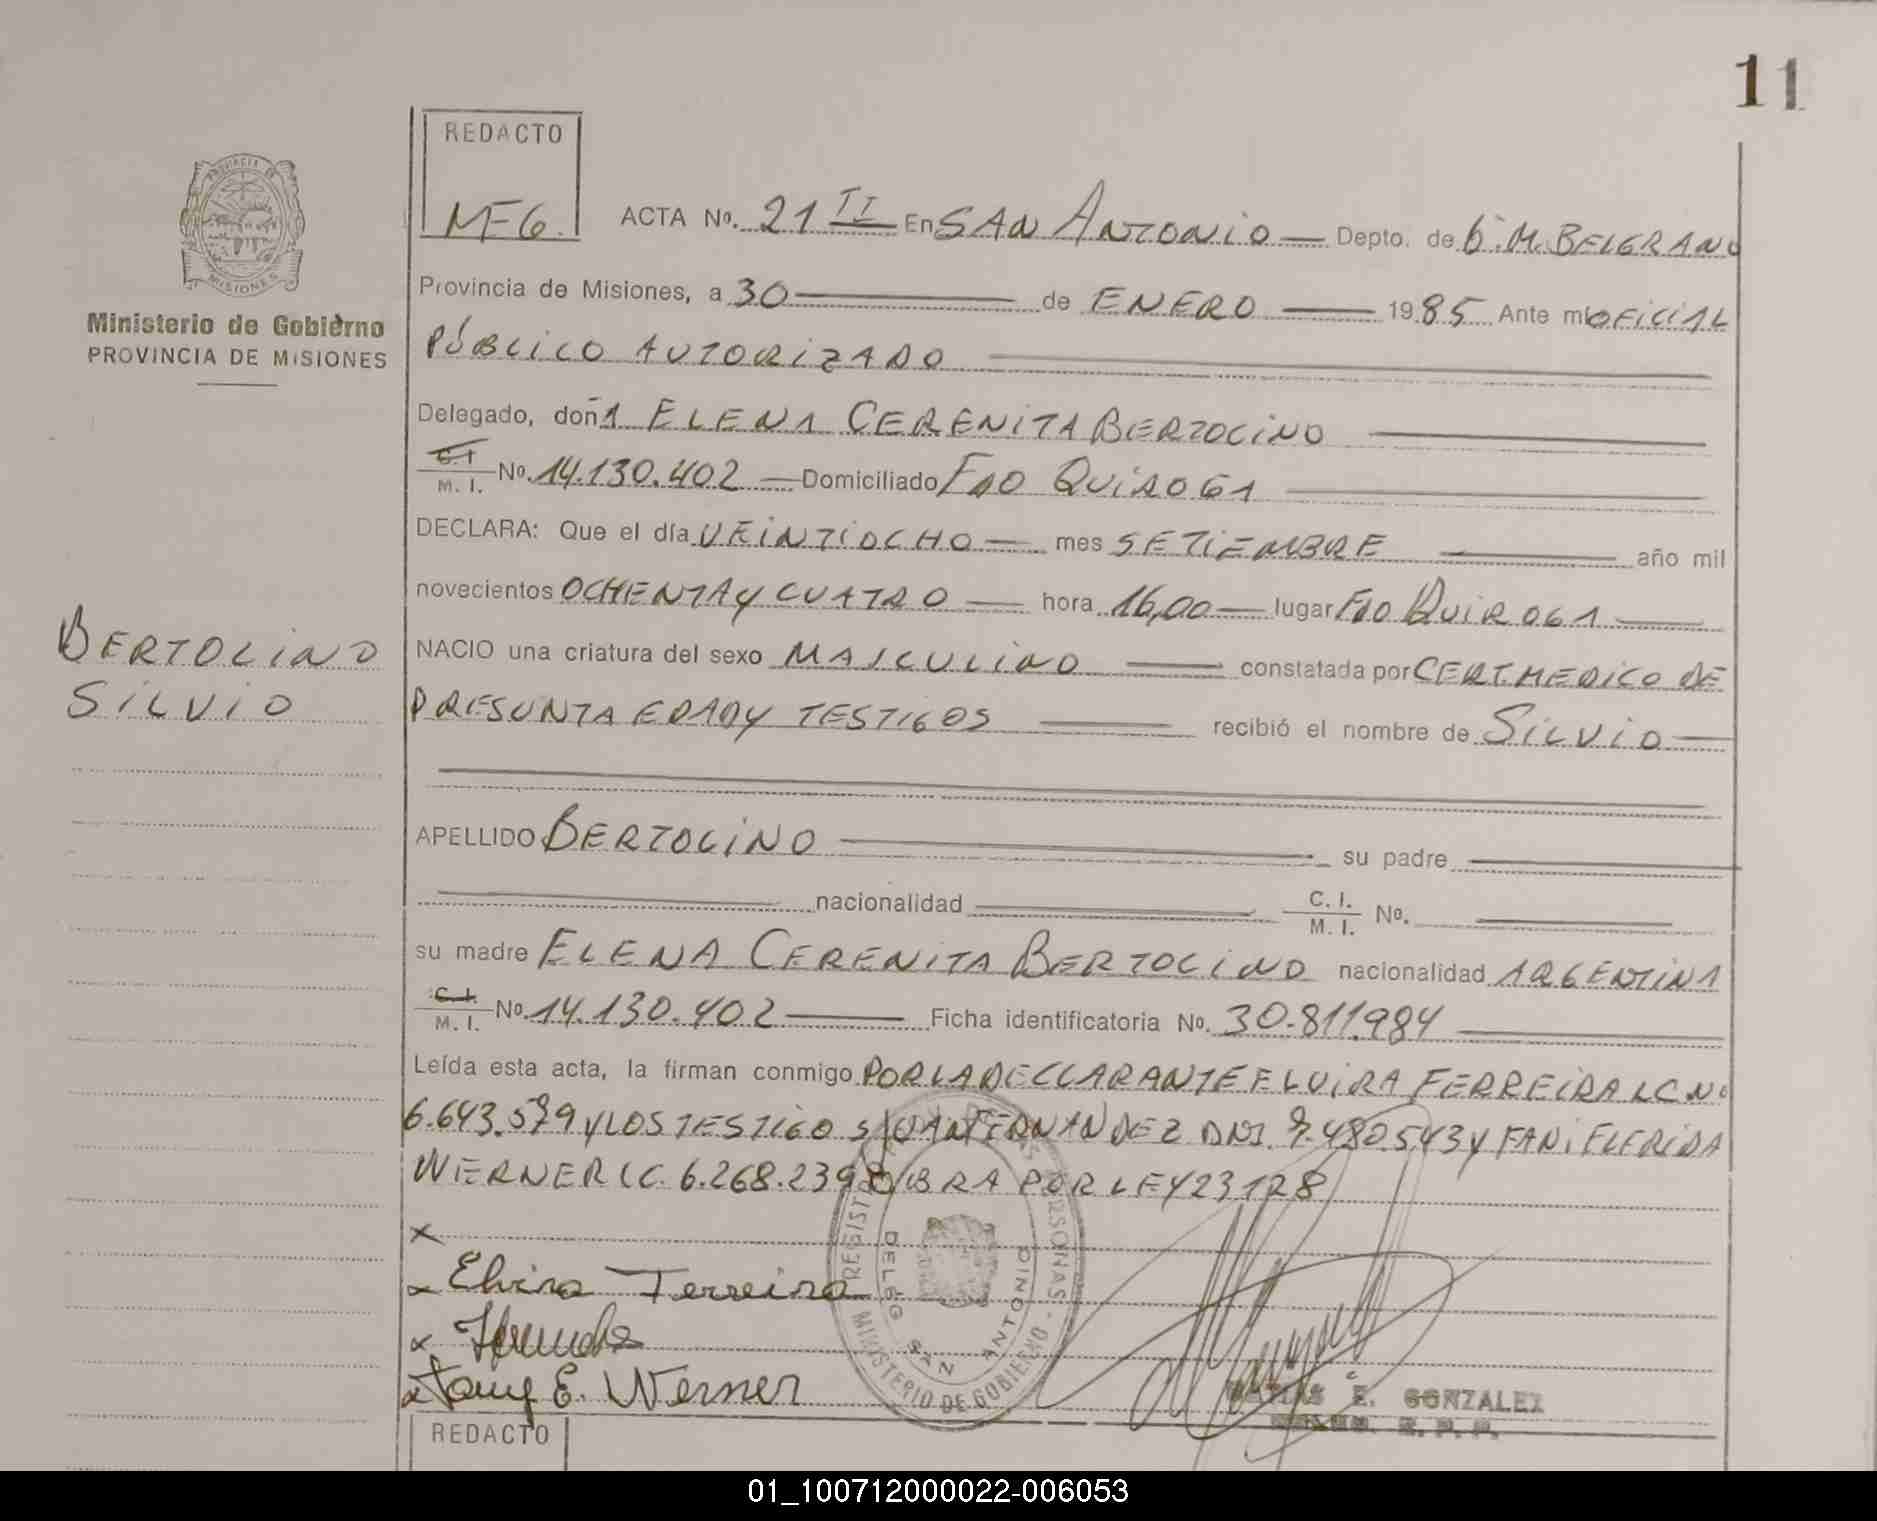 11
REDACTO
MEG.
PROVINCIA DE
MISIONES
Ministerio de Gobierno
PROVINCIA DE MISIONES
ACTA Nº. 21 II En SAN ANTONIO Depto. de G. M. BELGRANO
Provincia de Misiones, a 30 de ENERO 1985 Ante mi OFICIAL
PÚBLICO AUTORIZADO
Delegado, doñA ELENA CERENITA BERTOLINO
C.I. M. I. Nº. 14.130.402 Domiciliado FDO QUIROGA
DECLARA: Que el día VEINTIOCHO mes SETIEMBRE año mil
novecientos OCHENTA Y CUATRO hora 16,00 lugar FDO QUIROGA
BERTOLINO
SILVIO
NACIO una criatura del sexo MASCULINO constatada por CERT. MEDICO DE
PRESUNTA EDAD Y TESTIGOS recibió el nombre de SILVIO
APELLIDO BERTOLINO su padre
nacionalidad C. I. M. I. Nº.
su madre ELENA CERENITA BERTOLINO nacionalidad ARGENTINA
C. I. M. I. Nº. 14.130.402 Ficha identificatoria Nº. 30.811.984
Leída esta acta, la firman conmigo POR LA DECLARANTE ELVIRA FERREIRA LC Nº
6.643.579 Y LOS TESTIGOS JUAN FERNANDEZ DNI. 7.480.543 Y FANI ELFRIDA
WERNER LC. 6.268.239 O/BRA POR LEY 23128
x
x Elvira Ferreira
x
x Fany E. Werner
REGISTRO PERSONAS - MINISTERIO DE GOBIERNO
DELEG SAN ANTONIO
E. GONZALEZ
R. P. P.
REDACTO
01_100712000022-006053